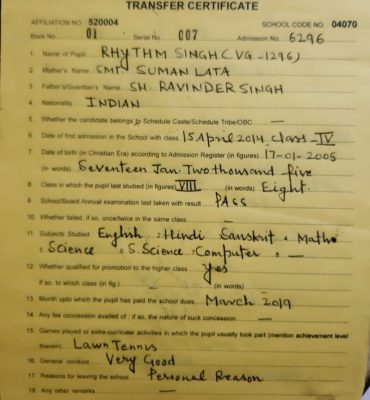 TRANSFER CERTIFICATE
AFFILIATION NO. 520004 SCHOOL CODE NO. 04070
Book No. 01 Serial No. 007 Admission No. 6296
1 Name of Pupil RHYTHM SINGH (VG-1296)
2. Mother's Name SMT SUMAN LATA
3. Father's/Guardian's Name SH. RAVINDER SINGH
4. Nationality INDIAN
5. Whether the candidate belongs to Schedule Caste/Schedule Tribe/OBC
6. Date of first admission in the School with class 15 April 2014, Class - IV
7. Date of birth (in Christian Era) according to Admission Register (in figures) 17-01-2005
(in words) Seventeen Jan. Two thousand five
8. Class in which the pupil last studied (in figures) VIII (in words) Eight.
9. School/Board Annual examination last taken with result PASS
10. Whether failed, if so, once/twice in the same class —
11. Subjects Studied English 2 Hindi Sanskrit 4 Maths
5 Science 6 S. Science 7 Computer 8 —
12. Whether qualified for promotion to the higher class Yes
if so, to which class (in fig.) — (in words)
13. Month upto which the pupil has paid the school dues March 2019
14. Any fee concession availed of : if so, the nature of such concession —
15. Games played or extra-curricular activities in which the pupil usually took part (mention achievement level
therein) Lawn Tennis
16. General conduct Very Good
17. Reasons for leaving the school Personal Reason
18. Any other remarks —